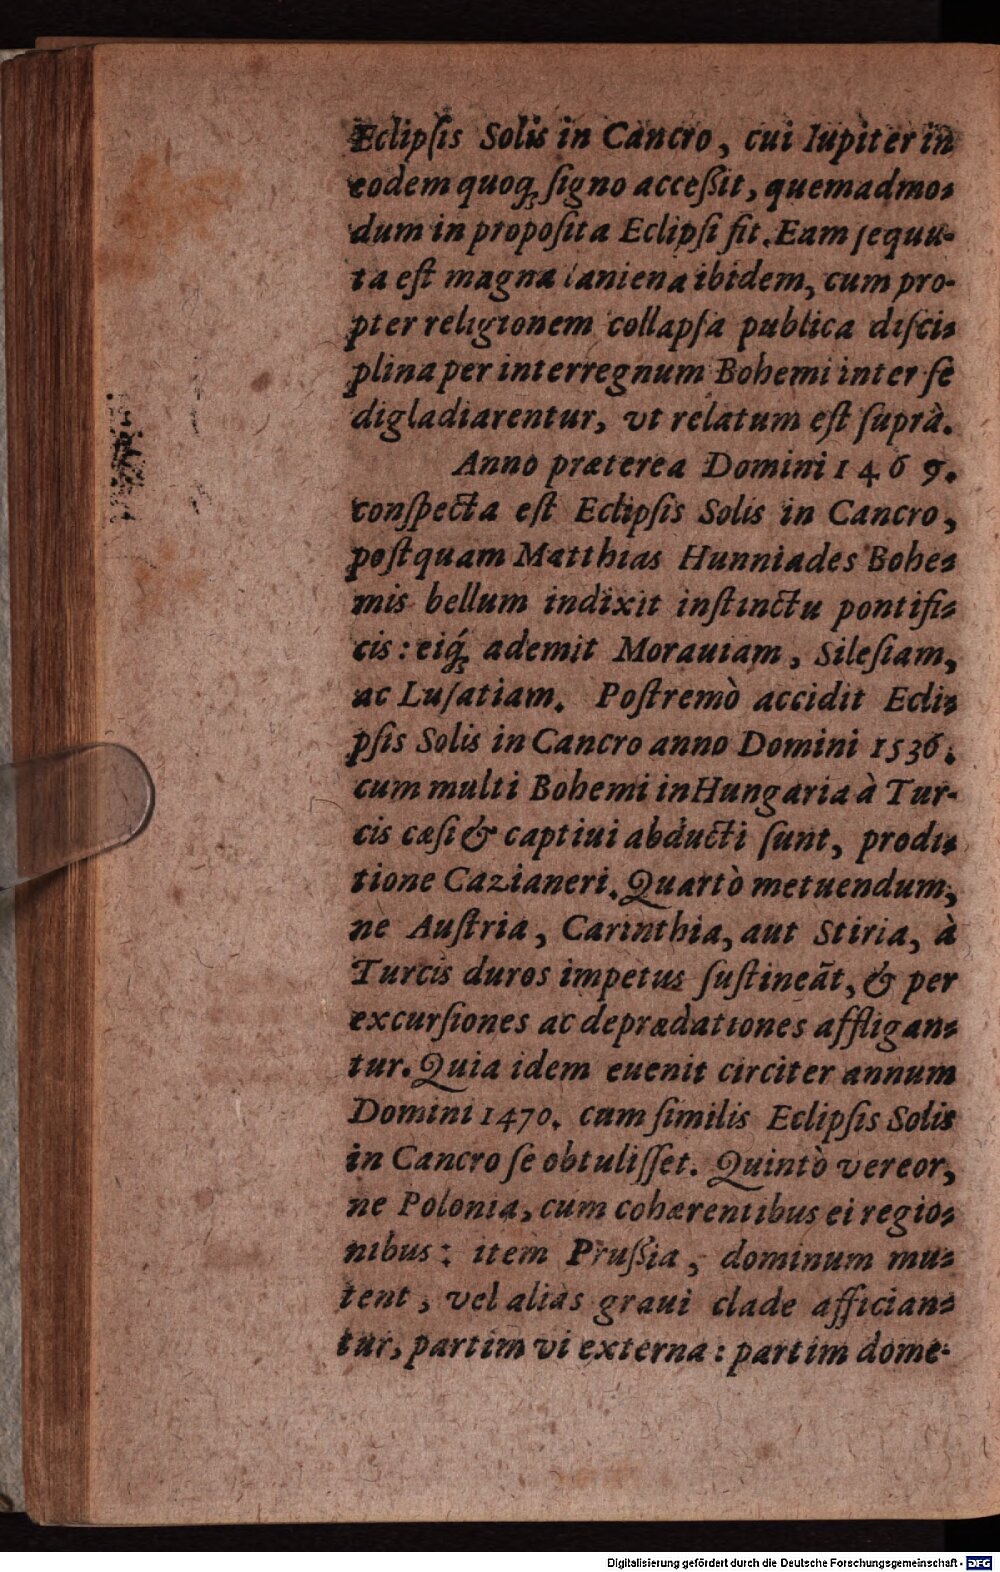 Eclipſis Solis in Cancro, cui Iupiter in
eodem quoq́; ſigno acceßit, quemadmo-
dum in propoſita Eclipſi fit. Eam ſequu-
ta eſt magna laniena ibidem, cum pro-
pter religionem collapſa publica diſci-
plina per interregnum Bohemi inter ſe
digladiarentur, vt relatum eſt ſuprà.
Anno præterea Domini 1469.
conſpecta eſt Eclipſis Solis in Cancro,
poſtquam Matthias Hunniades Bohe-
mis bellum indixit inſtinctu pontifi-
cis: eiq́; ademit Morauiam, Sileſiam,
ac Luſatiam. Poſtremò accidit Ecli-
pſis Solis in Cancro anno Domini 1536.
cum multi Bohemi in Hungaria à Tur-
cis cæſi & captiui abducti ſunt, prodi-
tione Cazianeri. Quartò metuendum,
ne Auſtria, Carinthia, aut Stiria, à
Turcis duros impetus ſuſtineãt, & per
excurſiones ac deprædationes affligan-
tur. Quia idem euenit circiter annum
Domini 1470. cum ſimilis Eclipſis Solis
in Cancro ſe obtuliſſet. Quintò vereor,
ne Polonia, cum cohærentibus ei regio-
nibus: item Prußia, dominum mu-
tent, vel aliàs graui clade affician-
tur, partim vi externa: partim dome-
Digitalisierung gefördert durch die Deutsche Forschungsgemeinschaft - DFG